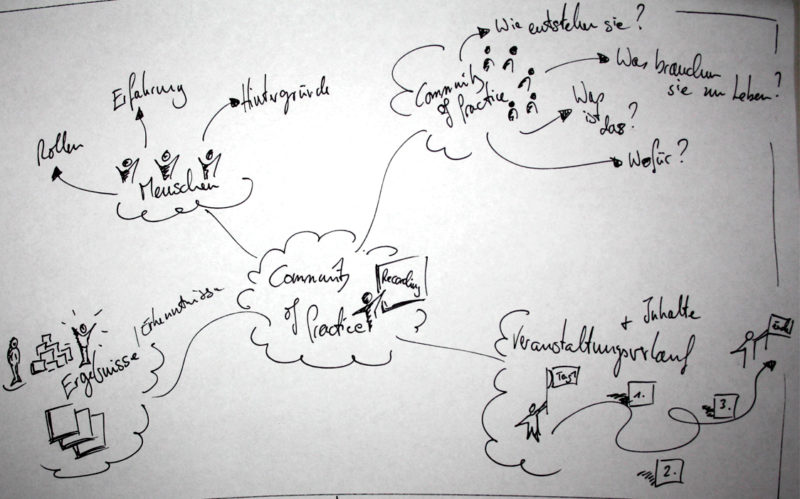 Wie entstehen sie?
Was brauchen
sie zum Leben?
Community
of Practice
Was
ist
das?
Wofür?
Erfahrung
Hintergründe
Rollen
Menschen
Community
of Practice
Recording
Ergebnisse
/Erkenntnisse
Veranstaltungsverlauf
+ Inhalte
1.
2.
3.
Ende